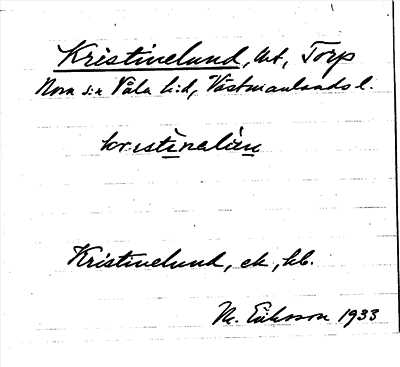 Kristinelund, Art, Torp
Nora s:n Våla h:d, Västmanlands l.
kristinelún
Kristinelund, ek, kb.
M. Eriksson 1933